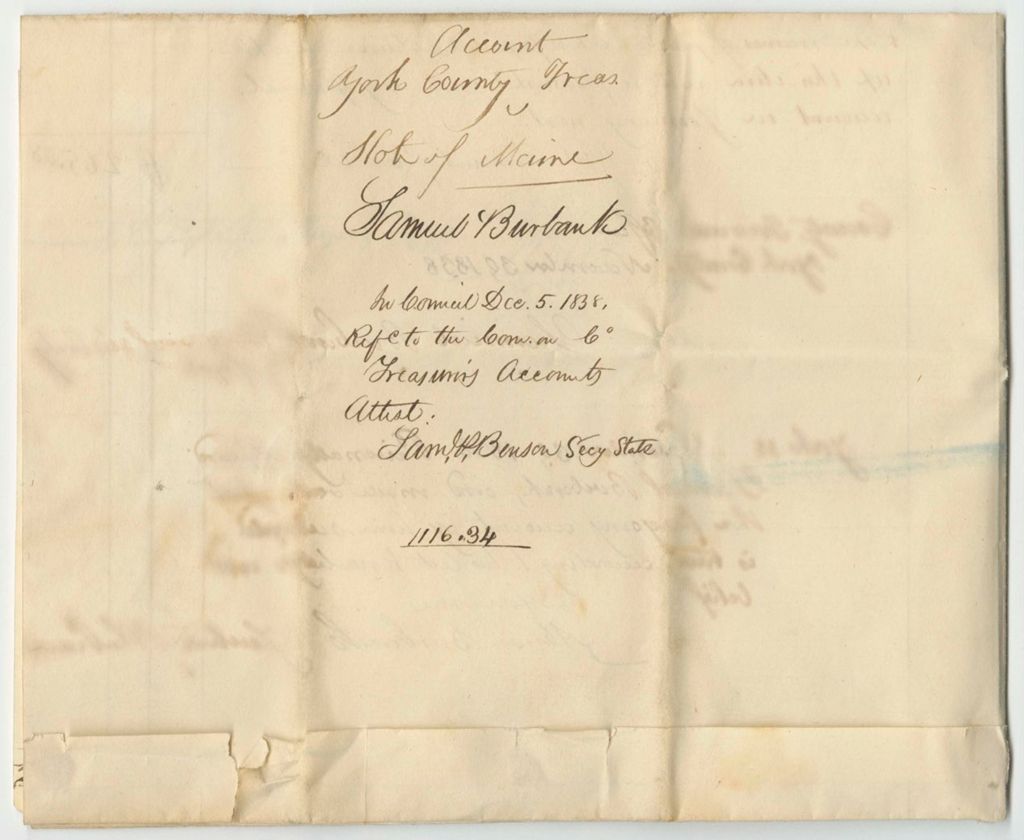 Account
York County Treas
State of Maine
Samuel Burbank
In Council Dec. 5. 1838,
Refd to the Com. on Co
Treasurers Accounts
Attest:
Saml. P. Benson Secy State
1116.34